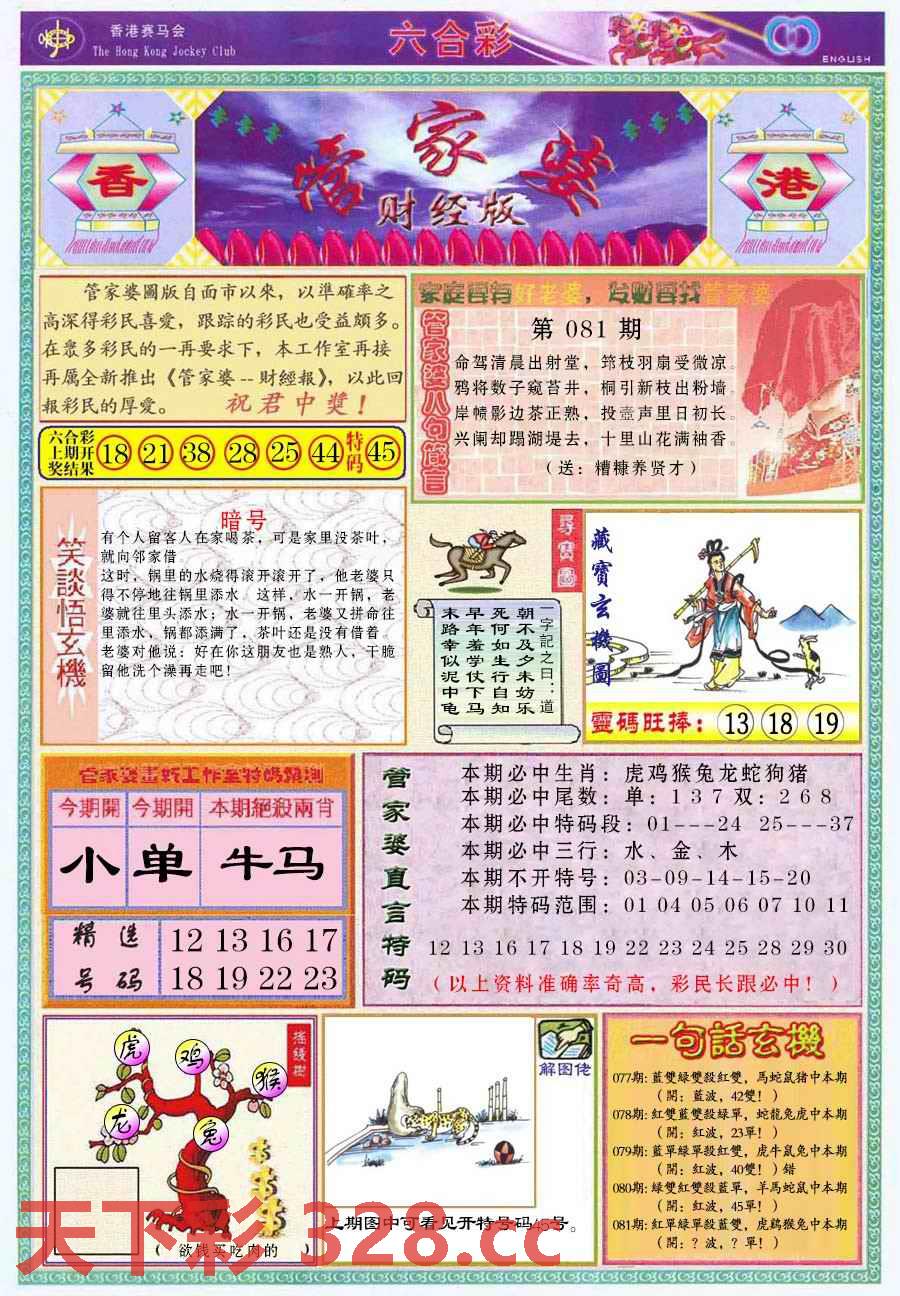 香港赛马会
The Hong Kong Jockey Club
六合彩
ENGLISH
香
管家婆
财经版
港
管家婆圖版自面市以來，以準確率之
高深得彩民喜愛，跟踪的彩民也受益頗多。
在眾多彩民的一再要求下，本工作室再接
再厲全新推出《管家婆--財經報》，以此回
報彩民的厚愛。 祝君中獎！
六合彩
上期开
奖结果
18 21 38 28 25 44 特码 45
家庭要有好老婆，发财要找管家婆
管家婆八句箴言
第 081 期
命驾清晨出射堂，筇枝羽扇受微凉。
鸦将数子窥苔井，桐引新枝出粉墙。
岸帻影边茶正熟，投壶声里日初长。
兴阑却蹋湖堤去，十里山花满袖香。
（送：糟糠养贤才）
笑談悟玄機
暗号
有个人留客人在家喝茶，可是家里没茶叶，
就向邻家借
这时，锅里的水烧得滚开滚开了，他老婆只
得不停地往锅里添水。这样，水一开锅，老
婆就往里头添水；水一开锅，老婆又拼命往
里添水，锅都添满了，茶叶还是没有借着。
老婆对他说：好在你这朋友也是熟人，干脆
留他洗个澡再走吧！
尋寶圖
一字記之曰：道
朝不及夕未妨乐
死何如生行自知
早年羞学仗下马
末路幸似泥中龟
藏寶玄機圖
靈碼旺捧： 13 18 19
管家婆畫致工作室特碼預測
今期開 今期開 本期絕殺兩肖
小 单 牛马
精选号码
12 13 16 17
18 19 22 23
管家婆直言特码
本期必中生肖：虎鸡猴兔龙蛇狗猪
本期必中尾数：单：1 3 7 双：2 6 8
本期必中特码段：01---24 25---37
本期必中三行：水、金、木
本期不开特号：03-09-14-15-20
本期特码范围：01 04 05 06 07 10 11
12 13 16 17 18 19 22 23 24 25 28 29 30
（以上资料准确率奇高，彩民长跟必中！）
摇錢樹
虎
鸡
猴
龙
兔
（ 欲钱买吃肉的 ）
解图佬
上期图中可看见开特号码45号。
一句話玄機
077期：藍雙綠雙殺紅雙，馬蛇鼠猪中本期
（開：藍波，42雙！）
078期：紅雙藍雙殺綠單，蛇龍兔虎中本期
（開：紅波，23單！）
079期：藍單綠單殺紅單，虎牛鼠兔中本期
（開：紅波，40雙！）错
080期：綠雙紅雙殺藍單，羊馬蛇鼠中本期
（開：紅波，45單！）
081期：紅單綠單殺藍雙，虎鷄猴兔中本期
（開：？波，？單！）
天下彩 328.cc